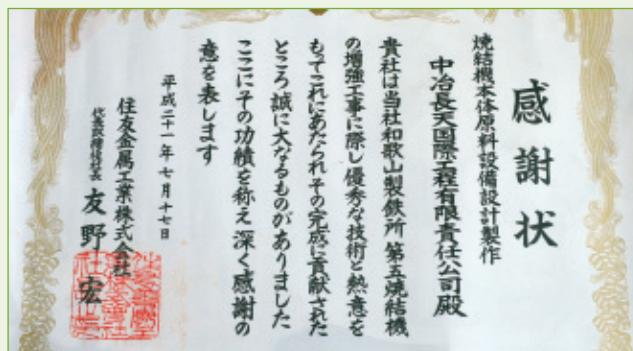 感謝状
焼結機本体原料設備設計製作
中冶長天国際工程有限責任公司殿
貴社は当社和歌山製鉄所 第五焼結機
の増強工事に際し優秀な技術と熱意を
もってこれにあたられその完成に貢献された
ところ誠に大なるものがありました
ここにその功績を称え深く感謝の
意を表します
平成二十一年七月十七日
住友金属工業株式会社
代表取締役社長 友野 宏